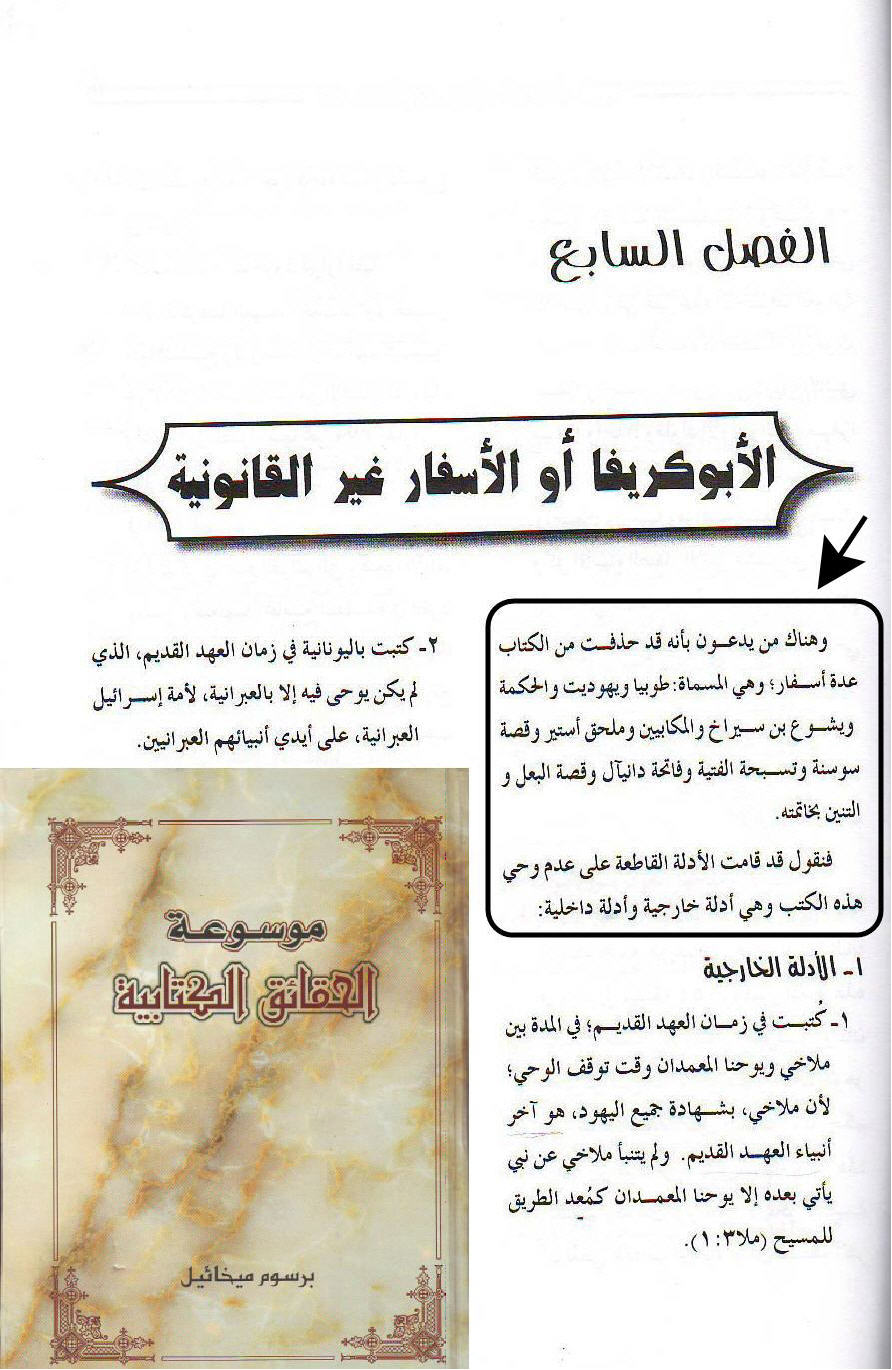 الفصل السابع
الأبوكريفا أو الأسفار غير القانونية
وهناك من يدعون بأنه قد حذفت من الكتاب
عدة أسفار؛ وهي المسماة: طوبيا ويهوديت والحكمة
ويشوع بن سيراخ والمكابيين وملحق أستير وقصة
سوسنة وتسبحة الفتية وفاتحة دانيآل وقصة البعل و
التنين بخاتمته.
فنقول قد قامت الأدلة القاطعة على عدم وحي
هذه الكتب وهي أدلة خارجية وأدلة داخلية:
١- الأدلة الخارجية
١- كُتبت في زمان العهد القديم؛ في المدة بين
ملاخي ويوحنا المعمدان وقت توقف الوحي؛
لأن ملاخي، بشهادة جميع اليهود، هو آخر
أنبياء العهد القديم. ولم يتنبأ ملاخي عن نبي
يأتي بعده إلا يوحنا المعمدان كمُعد الطريق
للمسيح (ملا٣: ١).
٢- كتبت باليونانية في زمان العهد القديم، الذي
لم يكن يوحى فيه إلا بالعبرانية، لأمة إسرائيل
العبرانية، على أيدي أنبيائهم العبرانيين.
موسوعة
الحقائق الكتابية
برسوم ميخائيل